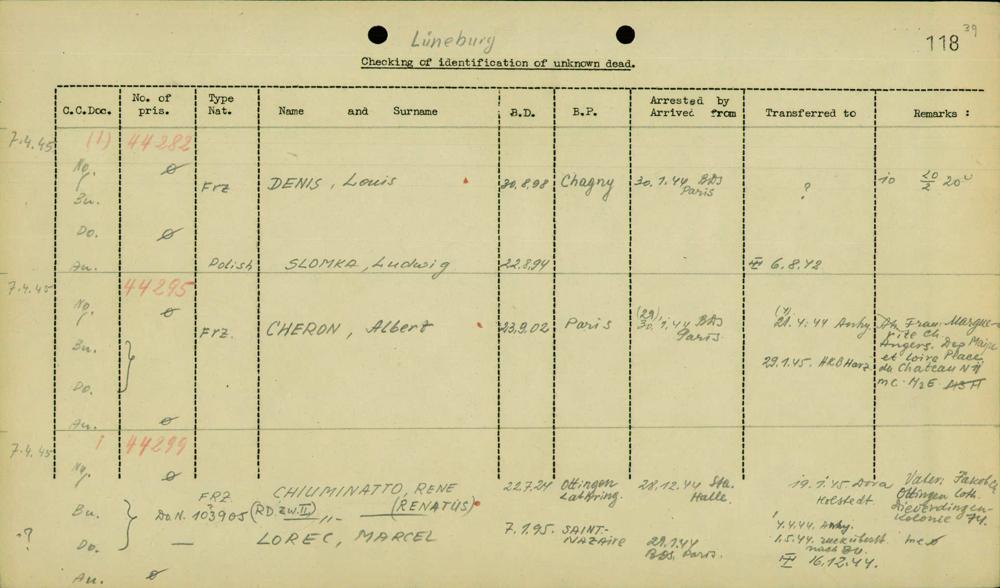 39
Lüneburg
118
Checking of identification of unknown dead.
C.C.Doc. No. of pris. Type Nat. Name and Surname B.D. B.P. Arrested by Arrived from Transferred to Remarks :
7.4.45 (1) 44282
Ny. ø
Bu. Frz DENIS, Louis 30.8.98 Chagny 30.1.44 BdS Paris ? 10 20/2 20
Do. ø
Au. Polish SLOMKA, Ludwig 22.8.94 III 6.8.42
7.4.45 44295
Ny. ø Frz. CHERON, Albert 23.9.02 Paris (29). 30.1.44 BdS Paris (4) 28.4.44 Anky. Frau Margue-
rite Ch.
Bu. Angers. Dep Maine
et Loire Place
29.1.45. AKB Harz du Chateau N II
Do. mc. M2E
Au. ø
7.4.45 1 44299
Ny. ø
FRZ CHIUMINATTO, RENE 22.7.24 Ottingen Lothring. 28.12.44 Sta. Halle. 19.1.45 Dora Holstedt. Valen. Jakob
Ottingen Loth.
Bu. Do N. 103905 (RD. zw. II) -"- (RENATUS) Sieverdingen-
Kolonie 74.
? Do. — LOREC, MARCEL 7.1.95. SAINT-NAZAIRE 29.1.44 BdS. Paris. 4.4.44. Anky.
1.5.44. rücküberst. nach Bu.
III 16.12.44.
Au. ø